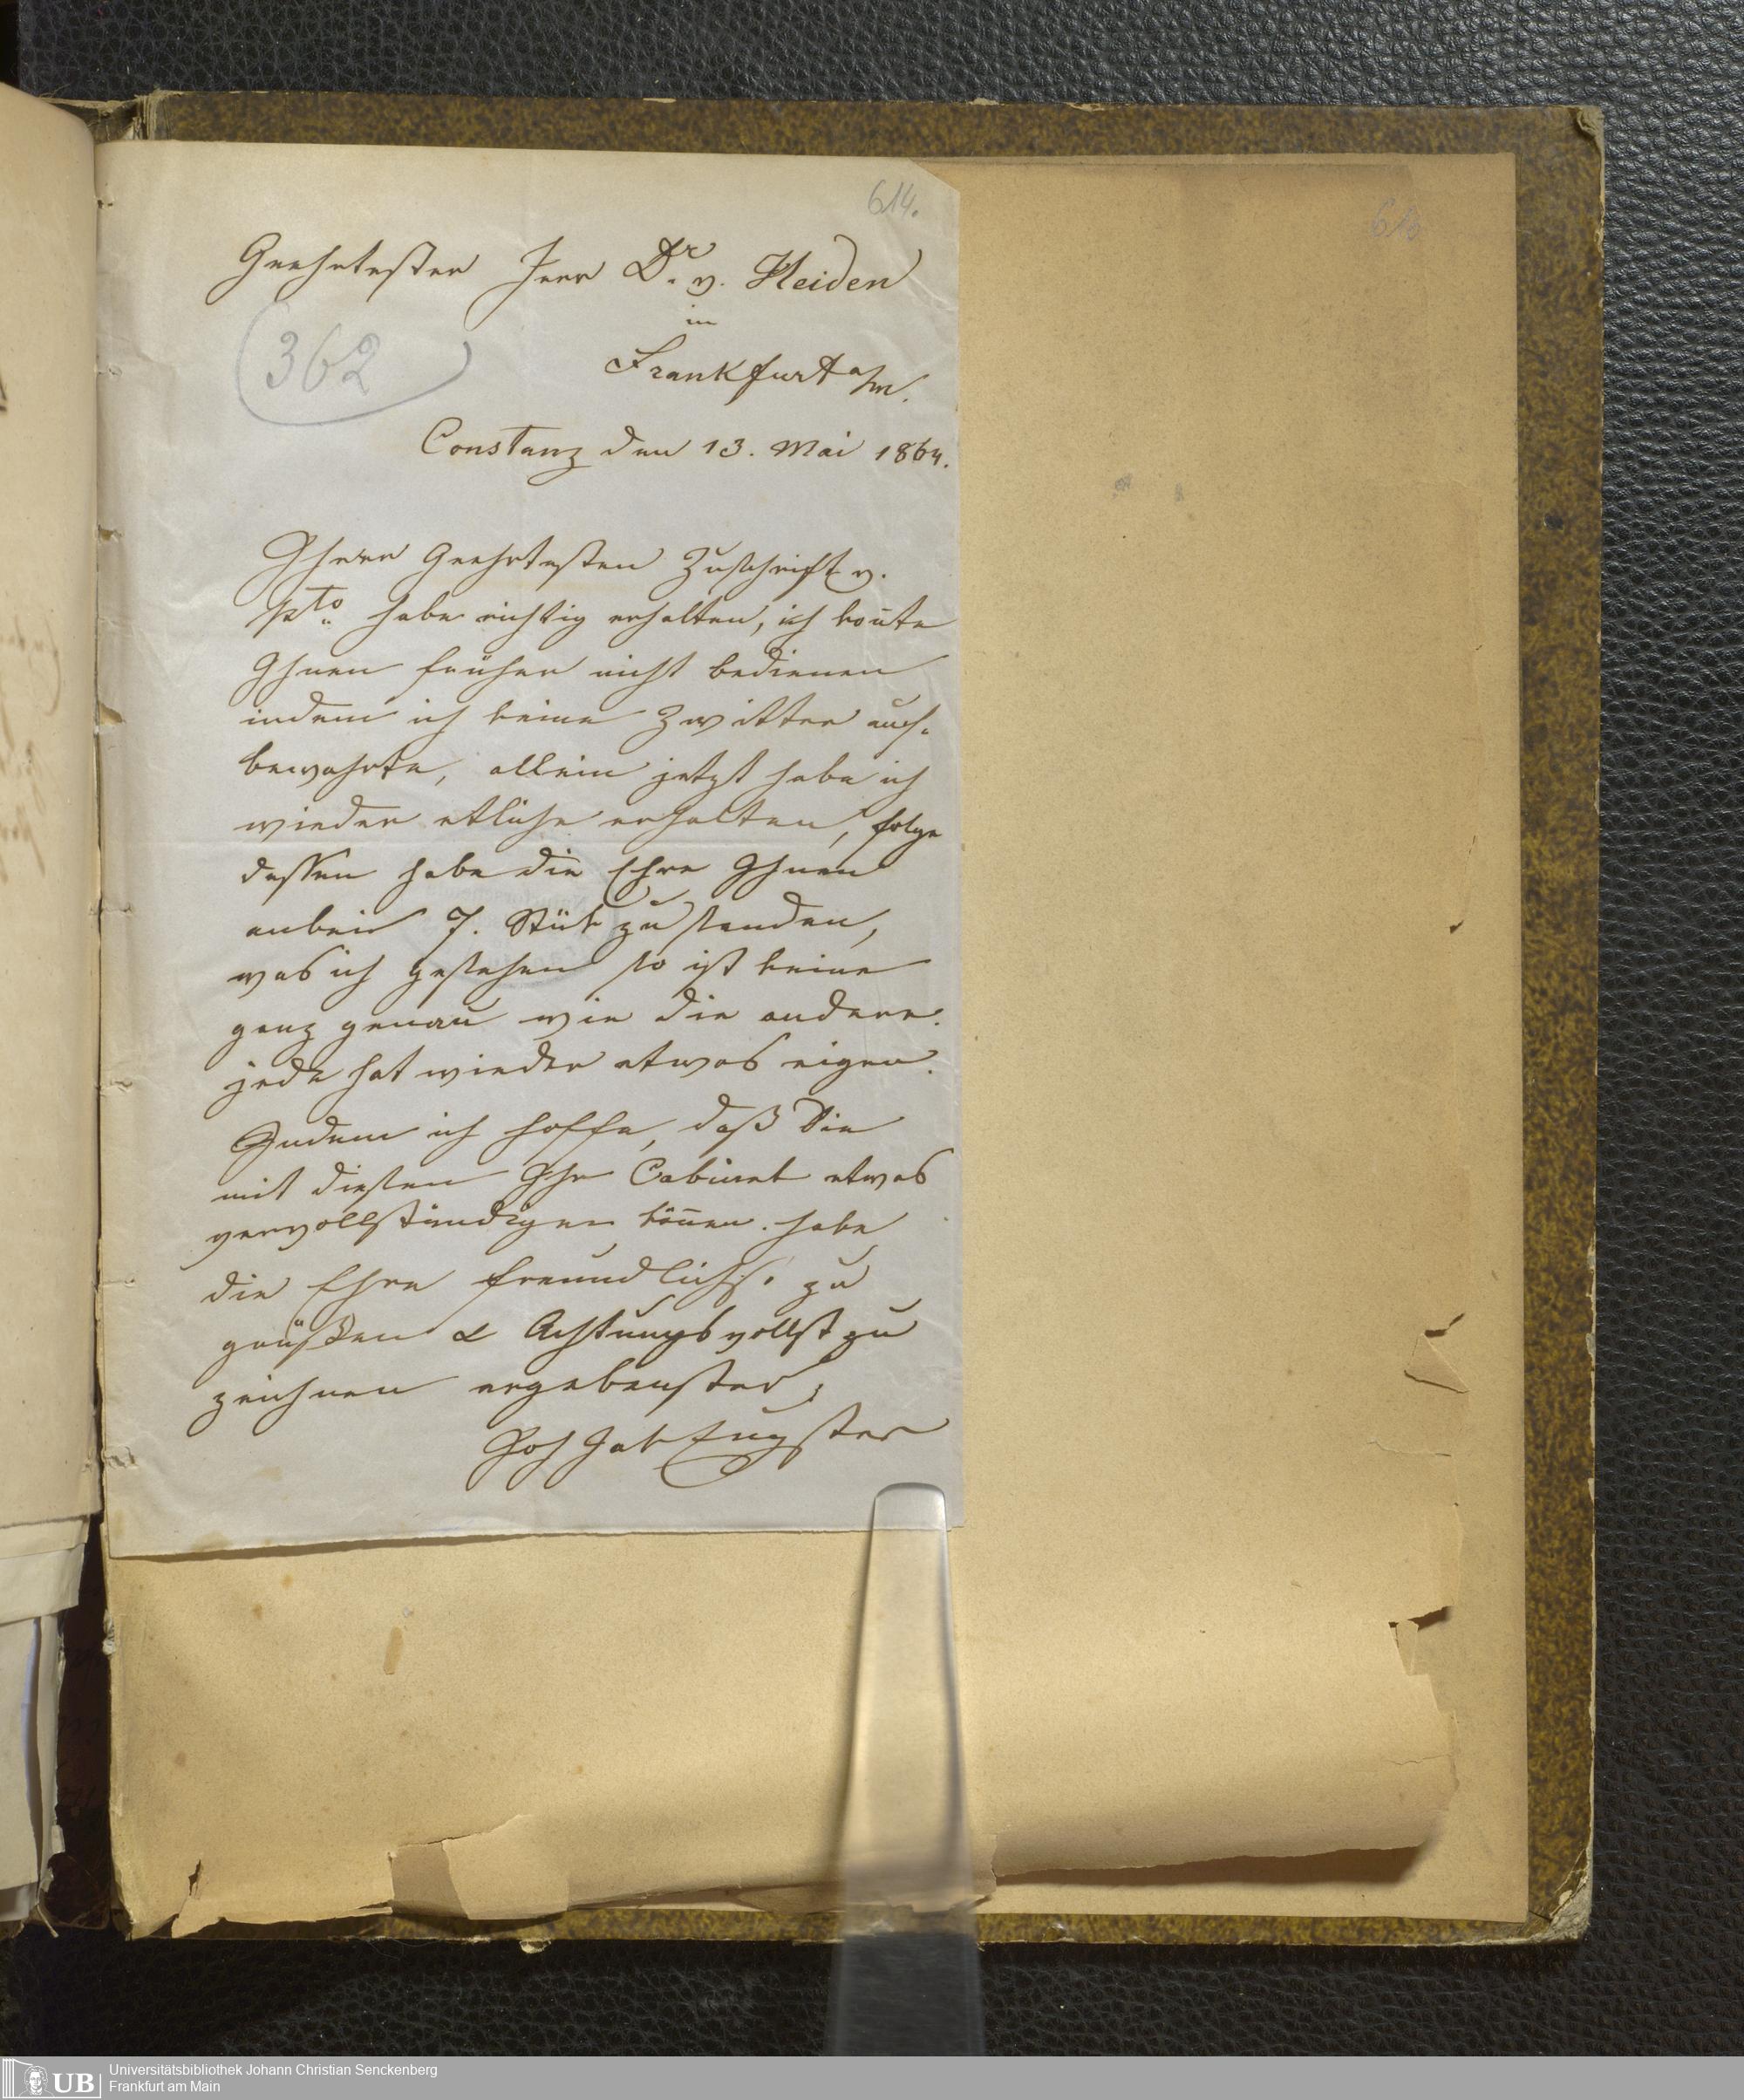 614.
615
Geehrtester Herr Dr. v. Heiden
in
Frankfurt a/m.
362
Constanz den 13. Mai 1864.
Ihrer Geehrtesten Zuschrift v.
habe richtig erhalten, ich kon̄te
Ihnen früher nicht bedienen
indem ich keine Zwitter auf-
bewahrte, allein jetzt habe ich
wieder etliche erhalten, folge
dessen habe die Ehre Ihnen
anbei 7. Stük zu senden,
was ich gesehen so ist keine
ganz genau wie die andere.
jede hat wieder etwas eigen.
Indem ich hoffe, daß Sie
mit diesen Ihr Cabinet etwas
vervollständigen kön̄en. habe
die Ehre freundlichst. zu
grüßen & Achtungsvollst zu
zeichnen ergebenster,
Joh Jak Eugster
UB
Universitätsbibliothek Johann Christian Senckenberg
Frankfurt am Main